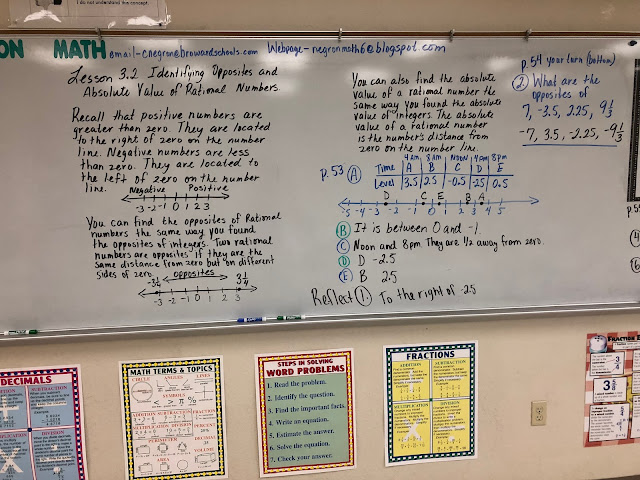 I do not understand this concept.
ON MATH email-cnegron@browardschools.com Webpage-negronmath6@blogspot.com
Lesson 3.2 Identifying Opposites and
Absolute Value of Rational Numbers.
Recall that positive numbers are
greater than zero. They are located
to the right of zero on the number
line. Negative numbers are less
than zero. They are located to
the left of zero on the number
line.
Negative Positive
-3 -2 -1 0 1 2 3
You can find the opposites of Rational
numbers the same way you found
the opposites of integers. Two rational
numbers are opposites if they are the
same distance from zero but on different
sides of zero.
-3 1/4 opposites 3 1/4
-3 -2 -1 0 1 2 3
You can also find the absolute
value of a rational number the
same way you found the absolute
value of integers. The absolute
value of a rational number
is the number's distance from
zero on the number line.
4am 8am Noon 4pm 8pm
p. 53 A Time A B C D E
Level 3.5 2.5 -0.5 -2.5 0.5
D C E B A
-5 -4 -3 -2 -1 0 1 2 3 4 5
B It is between 0 and -1.
C Noon and 8pm. They are 1/2 away from zero.
D D -2.5
E B 2.5
Reflect 1. To the right of -2.5
p. 54 your turn (bottom)
2 What are the
opposites of
7, -3.5, 2.25, 9 1/3
-7, 3.5, -2.25, -9 1/3
DECIMALS
SUBTRACTION
DIVISION
MATH TERMS & TOPICS
CIRCLE ANGLES LINES
SYMBOLS
ADDITION SUBTRACTION FRACTION
MULTIPLICATION DIVISION PERCENT
PERIMETER DECIMAL
AREA VOLUME
STEPS IN SOLVING
WORD PROBLEMS
1. Read the problem.
2. Identify the question.
3. Find the important facts.
4. Write an equation.
5. Estimate the answer.
6. Solve the equation.
7. Check your answer.
FRACTIONS
ADDITION SUBTRACTION
MULTIPLICATION DIVISION
FRACTION